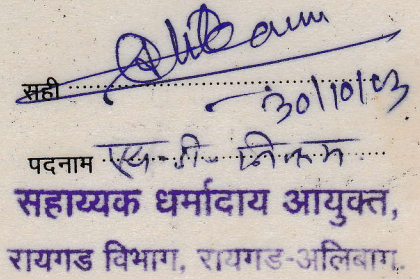 सही
30/10/03
पदनाम एस. जी. निकम
सहाय्यक धर्मादाय आयुक्त,
रायगड विभाग, रायगड-अलिबाग.